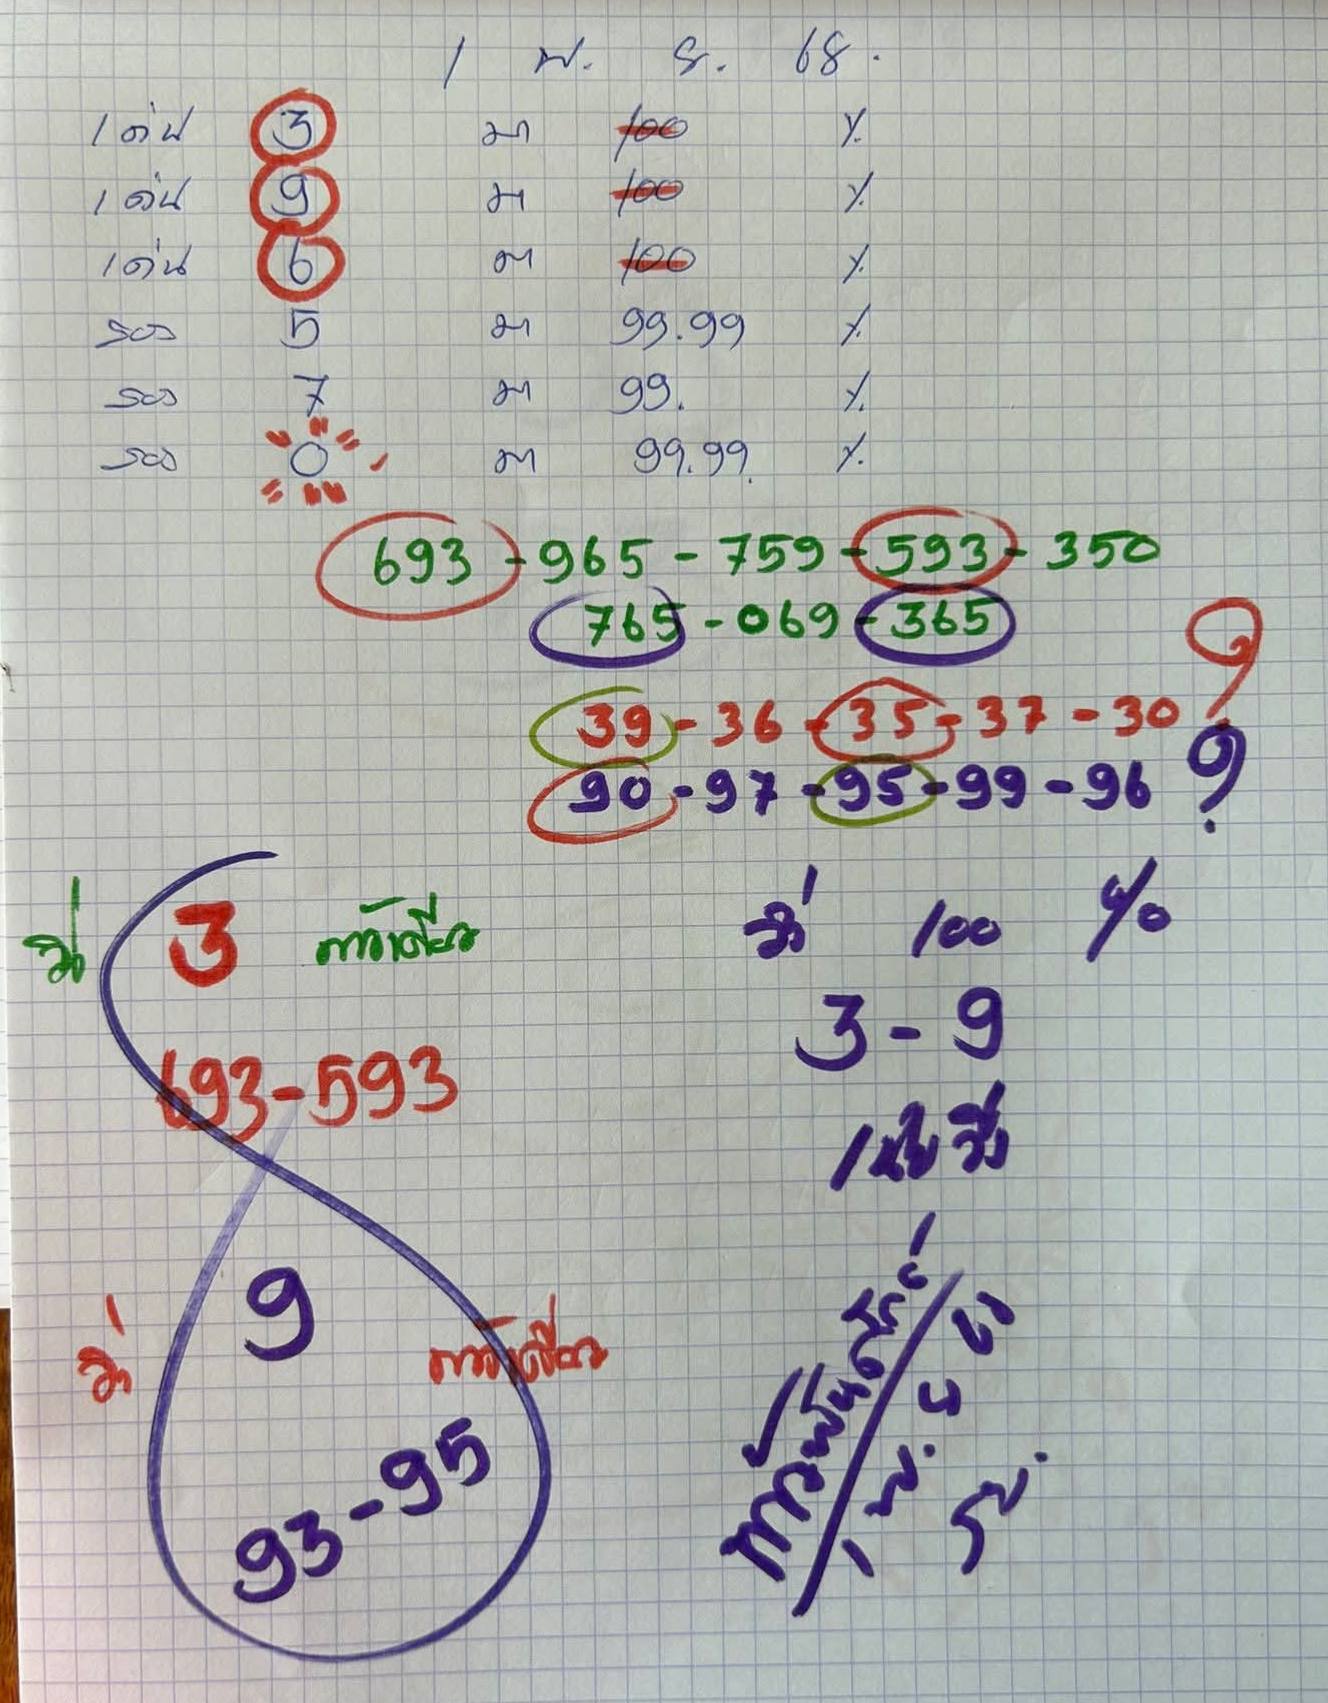 1 พ. ย. 68.
เด่น 3 มา 100 %
เด่น 9 มา 100 %
เด่น 6 มา 100 %
รอง 5 มา 99.99 %
รอง 7 มา 99. %
รอง 0 มา 99.99 %
693 - 965 - 759 - 593 - 350
765 - 069 - 365
39 - 36 - 35 - 37 - 30
90 - 97 - 95 - 99 - 96
วิ่ง 3 ตัวเดียว
693 - 593
วิ่ง 9 ตัวเดียว
93 - 95
วิ่ง 100 %
3 - 9